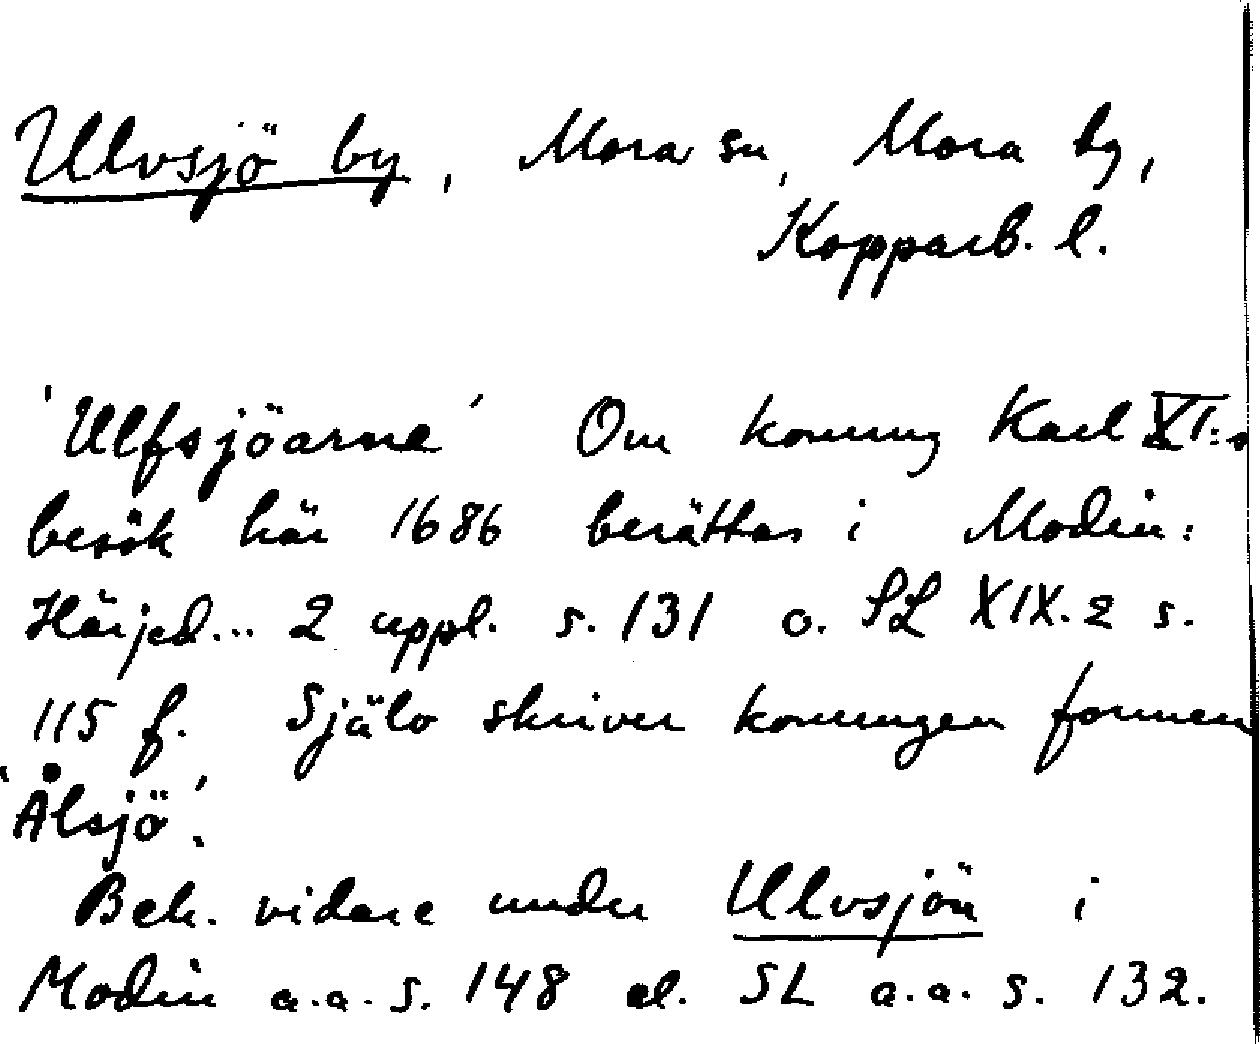 Ulvsjö by, Mora sn, Mora by,
Kopparb. l.
'Ulfsjöarne' Om konung Karl XI:s
besök här 1686 berättas i Modin:
Härjed... 2 uppl. s. 131 o. SL XIX.2 s.
115 f. Själv skriver konungen formen
'Ålsjö'.
Beh. vidare under Ulvsjön i
Modin a.a. s. 148 el. SL a.a. s. 132.